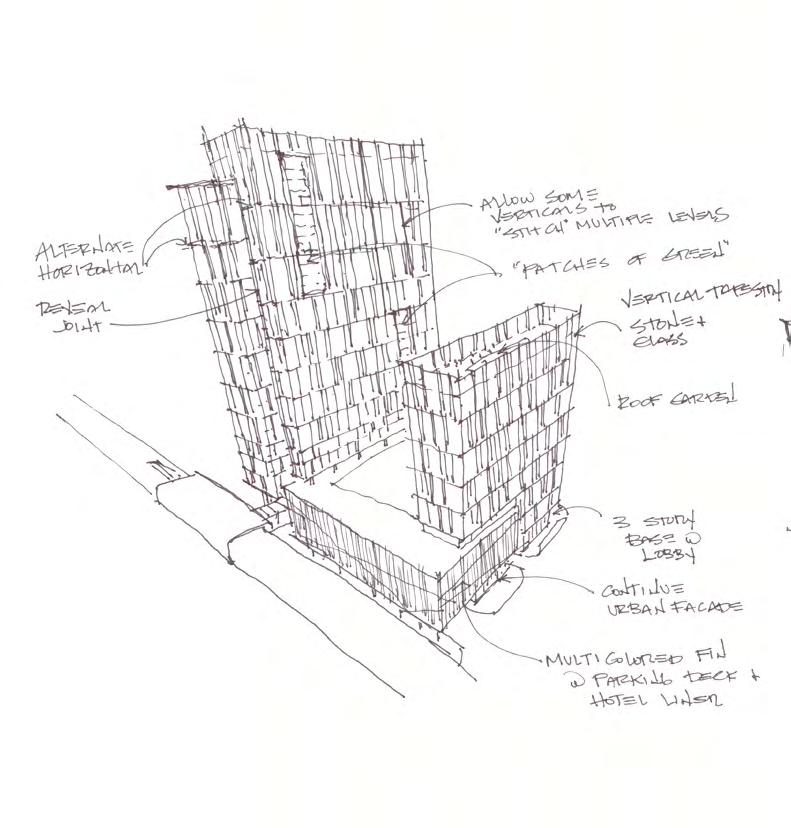 ALLOW SOME
VERTICALS TO
"STITCH" MULTIPLE LEVELS
ALTERNATE
HORIZONTAL
"PATCHES OF GREEN"
REVEAL
JOINT
VERTICAL TAPESTRY
STONE +
GLASS
ROOF GARDEN
3 STORY
BASE W
LOBBY
CONTINUE
URBAN FACADE
MULTICOLORED FIN
W PARKING DECK +
HOTEL LINER